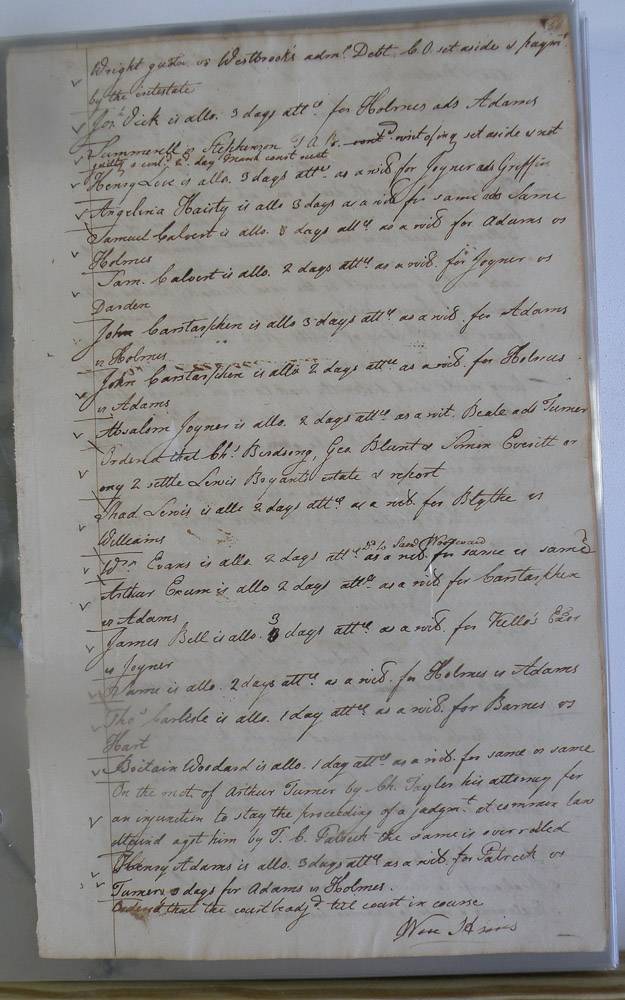 Wright guardn. vs Westbrook's adml. Debt. C O set aside & paymt.
by the intestate
Jos. Vick is allo. 3 days attce for Holmes ads Adams
Summerell vs Stephenson T A B. writ of inq set aside & not
guilty & contd. 2d. day March court next
Henry Love is allo. 3 days attce. as a wit. for Joyner ads Griffin
Angelina Hairty is allo 3 days as a wit for same ads Same
Samuel Calvert is allo. 3 days attce. as a wit. for Adams vs
Holmes
Sam. Calvert is allo. 2 days attce. as a wit. for Joyner vs
Darden
John Carstarphen is allo 3 days attce. as a wit. for Adams
vs Holmes
John Carstarphen is allo 2 days attce. as a wit. for Holmes
vs Adams
Absalom Joyner is allo. 2 days attce. as a wit. Beale ads Turner
Ordered that Chs. Birdsong, Geo Blunt & Simon Everitt or
any 2 settle Lewis Bryant's estate & report
Shad. Lewis is allo 2 days attce as a wit. for Blythe vs
Williams
Wm Evans is allo. 2 days attce. as a wit. for same vs same
Arthur Exum is allo 2 days attce. as a wit for Carstarphen
vs Adams
James Bell is allo. 3 days attce. as a wit. for Kello's Exor
vs Joyner
Same is allo. 2 days attce. as a wit. for Holmes vs Adams
Thos. Carlisle is allo. 1 day attce. as a wit. for Barnes vs
Hart
Britain Woodard is allo. 1 day attce. as a wit. for same vs same
On the mot of Arthur Turner by Ch. Taylor his attorney for
an injunction to stay the proceeding of a judgmt. at common law
obtaind agst him by T. C. Patrick the same is overruled
Henry Adams is allo. 3 days attce as a wit for Patrick vs
Turner 3 days for Adams vs Holmes.
Ordered that the court be adjd. till court in course